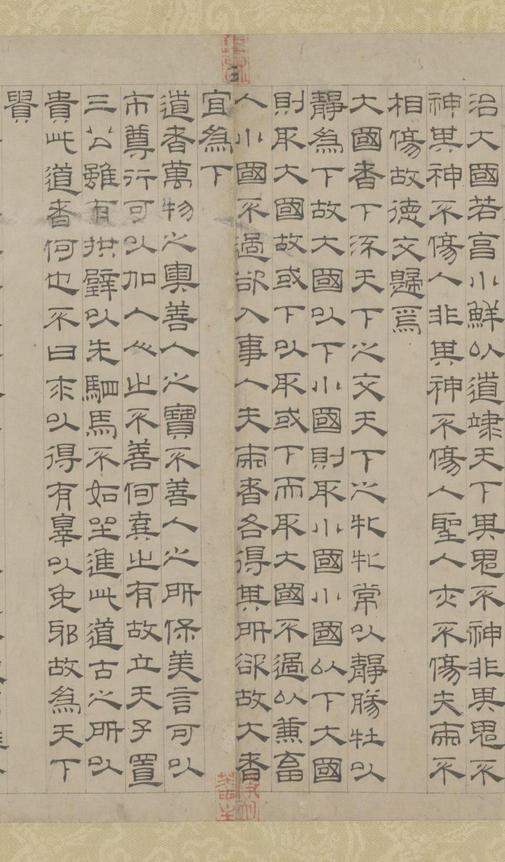 治大國若亨小鮮以道䇐天下其鬼不神非其鬼不
神其神不傷人非其神不傷人聖人亦不傷夫兩不
相傷故德交歸焉
大國者下流天下之交天下之牝牝常以靜勝牡以
靜為下故大國以下小國則取小國小國以下大國
則取大國故或下以取或下而取大國不過以兼畜
人小國不過欲入事人夫兩者各得其所欲故大者
宜為下
道者萬物之奧善人之寶不善人之所保美言可以
市尊行可以加人〻之不善何棄之有故立天子置
三公雖有拱璧以先駟馬不如坐進此道古之所以
貴此道者何也不曰求以得有辠以免邪故為天下
貴